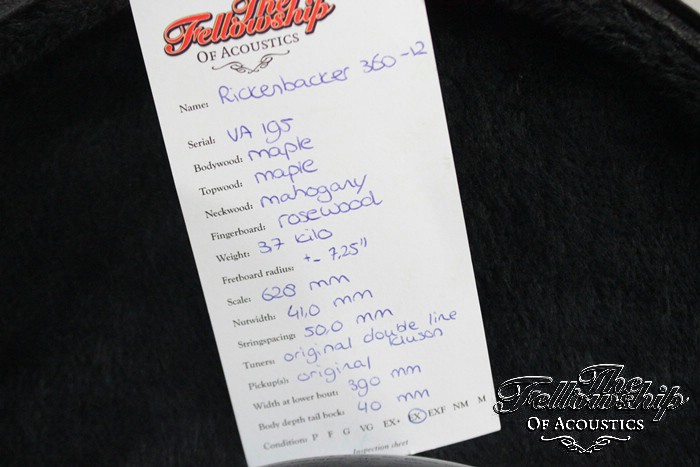 The
Fellowship
OF ACOUSTICS
Name: Rickenbacker 360-12
Serial: VA 195
Bodywood: maple
Topwood: maple
Neckwood: mahogany
Fingerboard: rosewood
Weight: 3.7 kilo
Fretboard radius: +- 7,25"
Scale: 628 mm
Nutwidth: 41,0 mm
Stringspacing: 50,0 mm
Tuners: original double line
kluson
Pickup(s): original
Width at lower bout: 390 mm
Body depth tail bock: 40 mm
Condition: P F G VG EX+ EX EXF NM M
Inspection sheet
The
Fellowship
OF ACOUSTICS